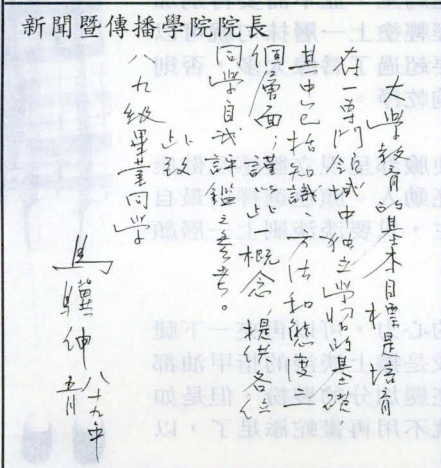 新聞暨傳播學院院長
大學教育的基本目標是培育
在一專門領域中獨立學習的基礎，
其中包括知識、方法和態度三
個層面；謹以此一概念，提供各位
同學自我評鑑之參考。
此致
八九級畢業同學
馬驥伸
八十九年
五月